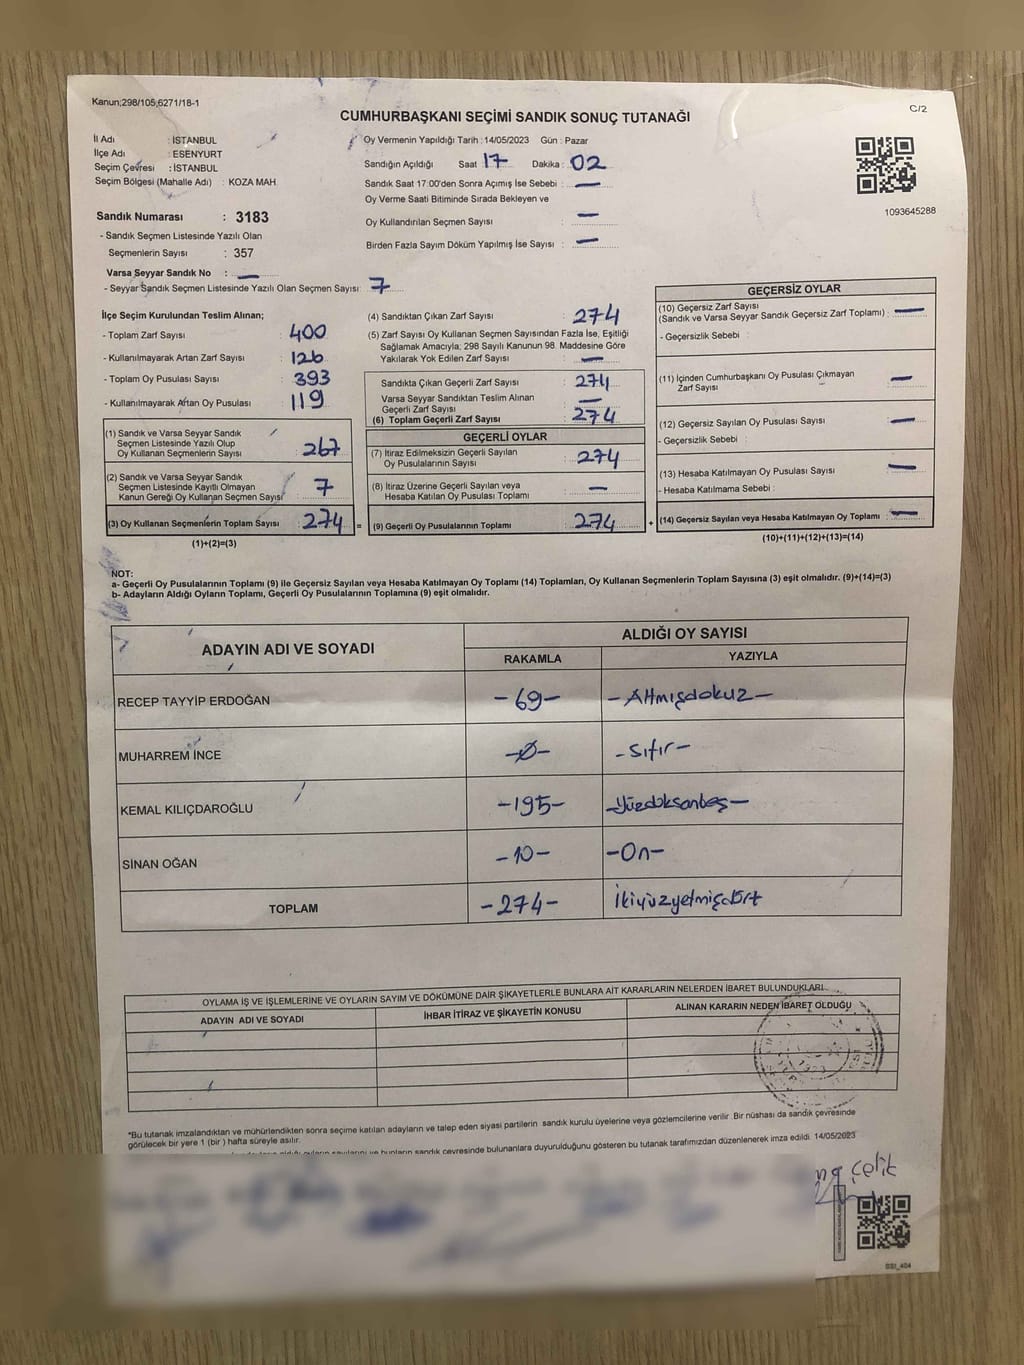 Kanun;298/105,6271/18-1
C/2
CUMHURBAŞKANI SEÇİMİ SANDIK SONUÇ TUTANAĞI
İl Adı : İSTANBUL
İlçe Adı : ESENYURT
Seçim Çevresi : İSTANBUL
Seçim Bölgesi (Mahalle Adı) : KOZA MAH.
Sandık Numarası : 3183
- Sandık Seçmen Listesinde Yazılı Olan
Seçmenlerin Sayısı : 357
Varsa Seyyar Sandık No : —
- Seyyar Sandık Seçmen Listesinde Yazılı Olan Seçmen Sayısı: 7
Oy Vermenin Yapıldığı Tarih : 14/05/2023 Gün : Pazar
Sandığın Açıldığı Saat 17 Dakika : 02
Sandık Saat 17:00'den Sonra Açımış İse Sebebi : —
Oy Verme Saati Bitiminde Sırada Bekleyen ve
Oy Kullandırılan Seçmen Sayısı —
Birden Fazla Sayım Döküm Yapılmış İse Sayısı : —
1093645288
İlçe Seçim Kurulundan Teslim Alınan;
- Toplam Zarf Sayısı : 400
- Kullanılmayarak Artan Zarf Sayısı : 126
- Toplam Oy Pusulası Sayısı : 393
- Kullanılmayarak Artan Oy Pusulası : 119
(1) Sandık ve Varsa Seyyar Sandık
Seçmen Listesinde Yazılı Olup
Oy Kullanan Seçmenlerin Sayısı : 267
(2) Sandık ve Varsa Seyyar Sandık
Seçmen Listesinde Kayıtlı Olmayan
Kanun Gereği Oy Kullanan Seçmen Sayısı : 7
(3) Oy Kullanan Seçmenlerin Toplam Sayısı : 274 =
(1)+(2)=(3)
(4) Sandıktan Çıkan Zarf Sayısı : 274
(5) Zarf Sayısı Oy Kullanan Seçmen Sayısından Fazla İse, Eşitliği
Sağlamak Amacıyla; 298 Sayılı Kanunun 98. Maddesine Göre
Yakılarak Yok Edilen Zarf Sayısı : —
Sandıkta Çıkan Geçerli Zarf Sayısı : 274
Varsa Seyyar Sandıktan Teslim Alınan
Geçerli Zarf Sayısı : —
(6) Toplam Geçerli Zarf Sayısı : 274
GEÇERLİ OYLAR
(7) İtiraz Edilmeksizin Geçerli Sayılan
Oy Pusulalarının Sayısı : 274
(8) İtiraz Üzerine Geçerli Sayılan veya
Hesaba Katılan Oy Pusulası Toplamı : —
(9) Geçerli Oy Pusulalarının Toplamı : 274 +
GEÇERSİZ OYLAR
(10) Geçersiz Zarf Sayısı
(Sandık ve Varsa Seyyar Sandık Geçersiz Zarf Toplamı) : —
- Geçersizlik Sebebi :
(11) İçinden Cumhurbaşkanı Oy Pusulası Çıkmayan
Zarf Sayısı : —
(12) Geçersiz Sayılan Oy Pusulası Sayısı : —
- Geçersizlik Sebebi :
(13) Hesaba Katılmayan Oy Pusulası Sayısı : —
- Hesaba Katılmama Sebebi :
(14) Geçersiz Sayılan veya Hesaba Katılmayan Oy Toplamı : —
(10)+(11)+(12)+(13)=(14)
NOT:
a- Geçerli Oy Pusulalarının Toplamı (9) ile Geçersiz Sayılan veya Hesaba Katılmayan Oy Toplamı (14) Toplamları, Oy Kullanan Seçmenlerin Toplam Sayısına (3) eşit olmalıdır. (9)+(14)=(3)
b- Adayların Aldığı Oyların Toplamı, Geçerli Oy Pusulalarının Toplamına (9) eşit olmalıdır.
ADAYIN ADI VE SOYADI
ALDIĞI OY SAYISI
RAKAMLA YAZIYLA
RECEP TAYYİP ERDOĞAN -69- -Altmışdokuz-
MUHARREM İNCE -0- -Sıfır-
KEMAL KILIÇDAROĞLU -195- -Yüzdoksanbeş-
SİNAN OĞAN -10- -On-
TOPLAM -274- İkiyüzyetmişdört
OYLAMA İŞ VE İŞLEMLERİNE VE OYLARIN SAYIM VE DÖKÜMÜNE DAİR ŞİKAYETLERLE BUNLARA AİT KARARLARIN NELERDEN İBARET BULUNDUKLARI
ADAYIN ADI VE SOYADI
İHBAR İTİRAZ VE ŞİKAYETİN KONUSU
ALINAN KARARIN NEDEN İBARET OLDUĞU
*Bu tutanak imzalandıktan ve mühürlendikten sonra seçime katılan adayların ve talep eden siyasi partilerin sandık kurulu üyelerine veya gözlemcilerine verilir. Bir nüshası da sandık çevresinde
görülecek bir yere 1 (bir) hafta süreyle asılır.
sandık çevresinde bulunanlara duyurulduğunu gösteren bu tutanak tarafımızdan düzenlenerek imza edildi. 14/05/2023
çelik
SSI_404